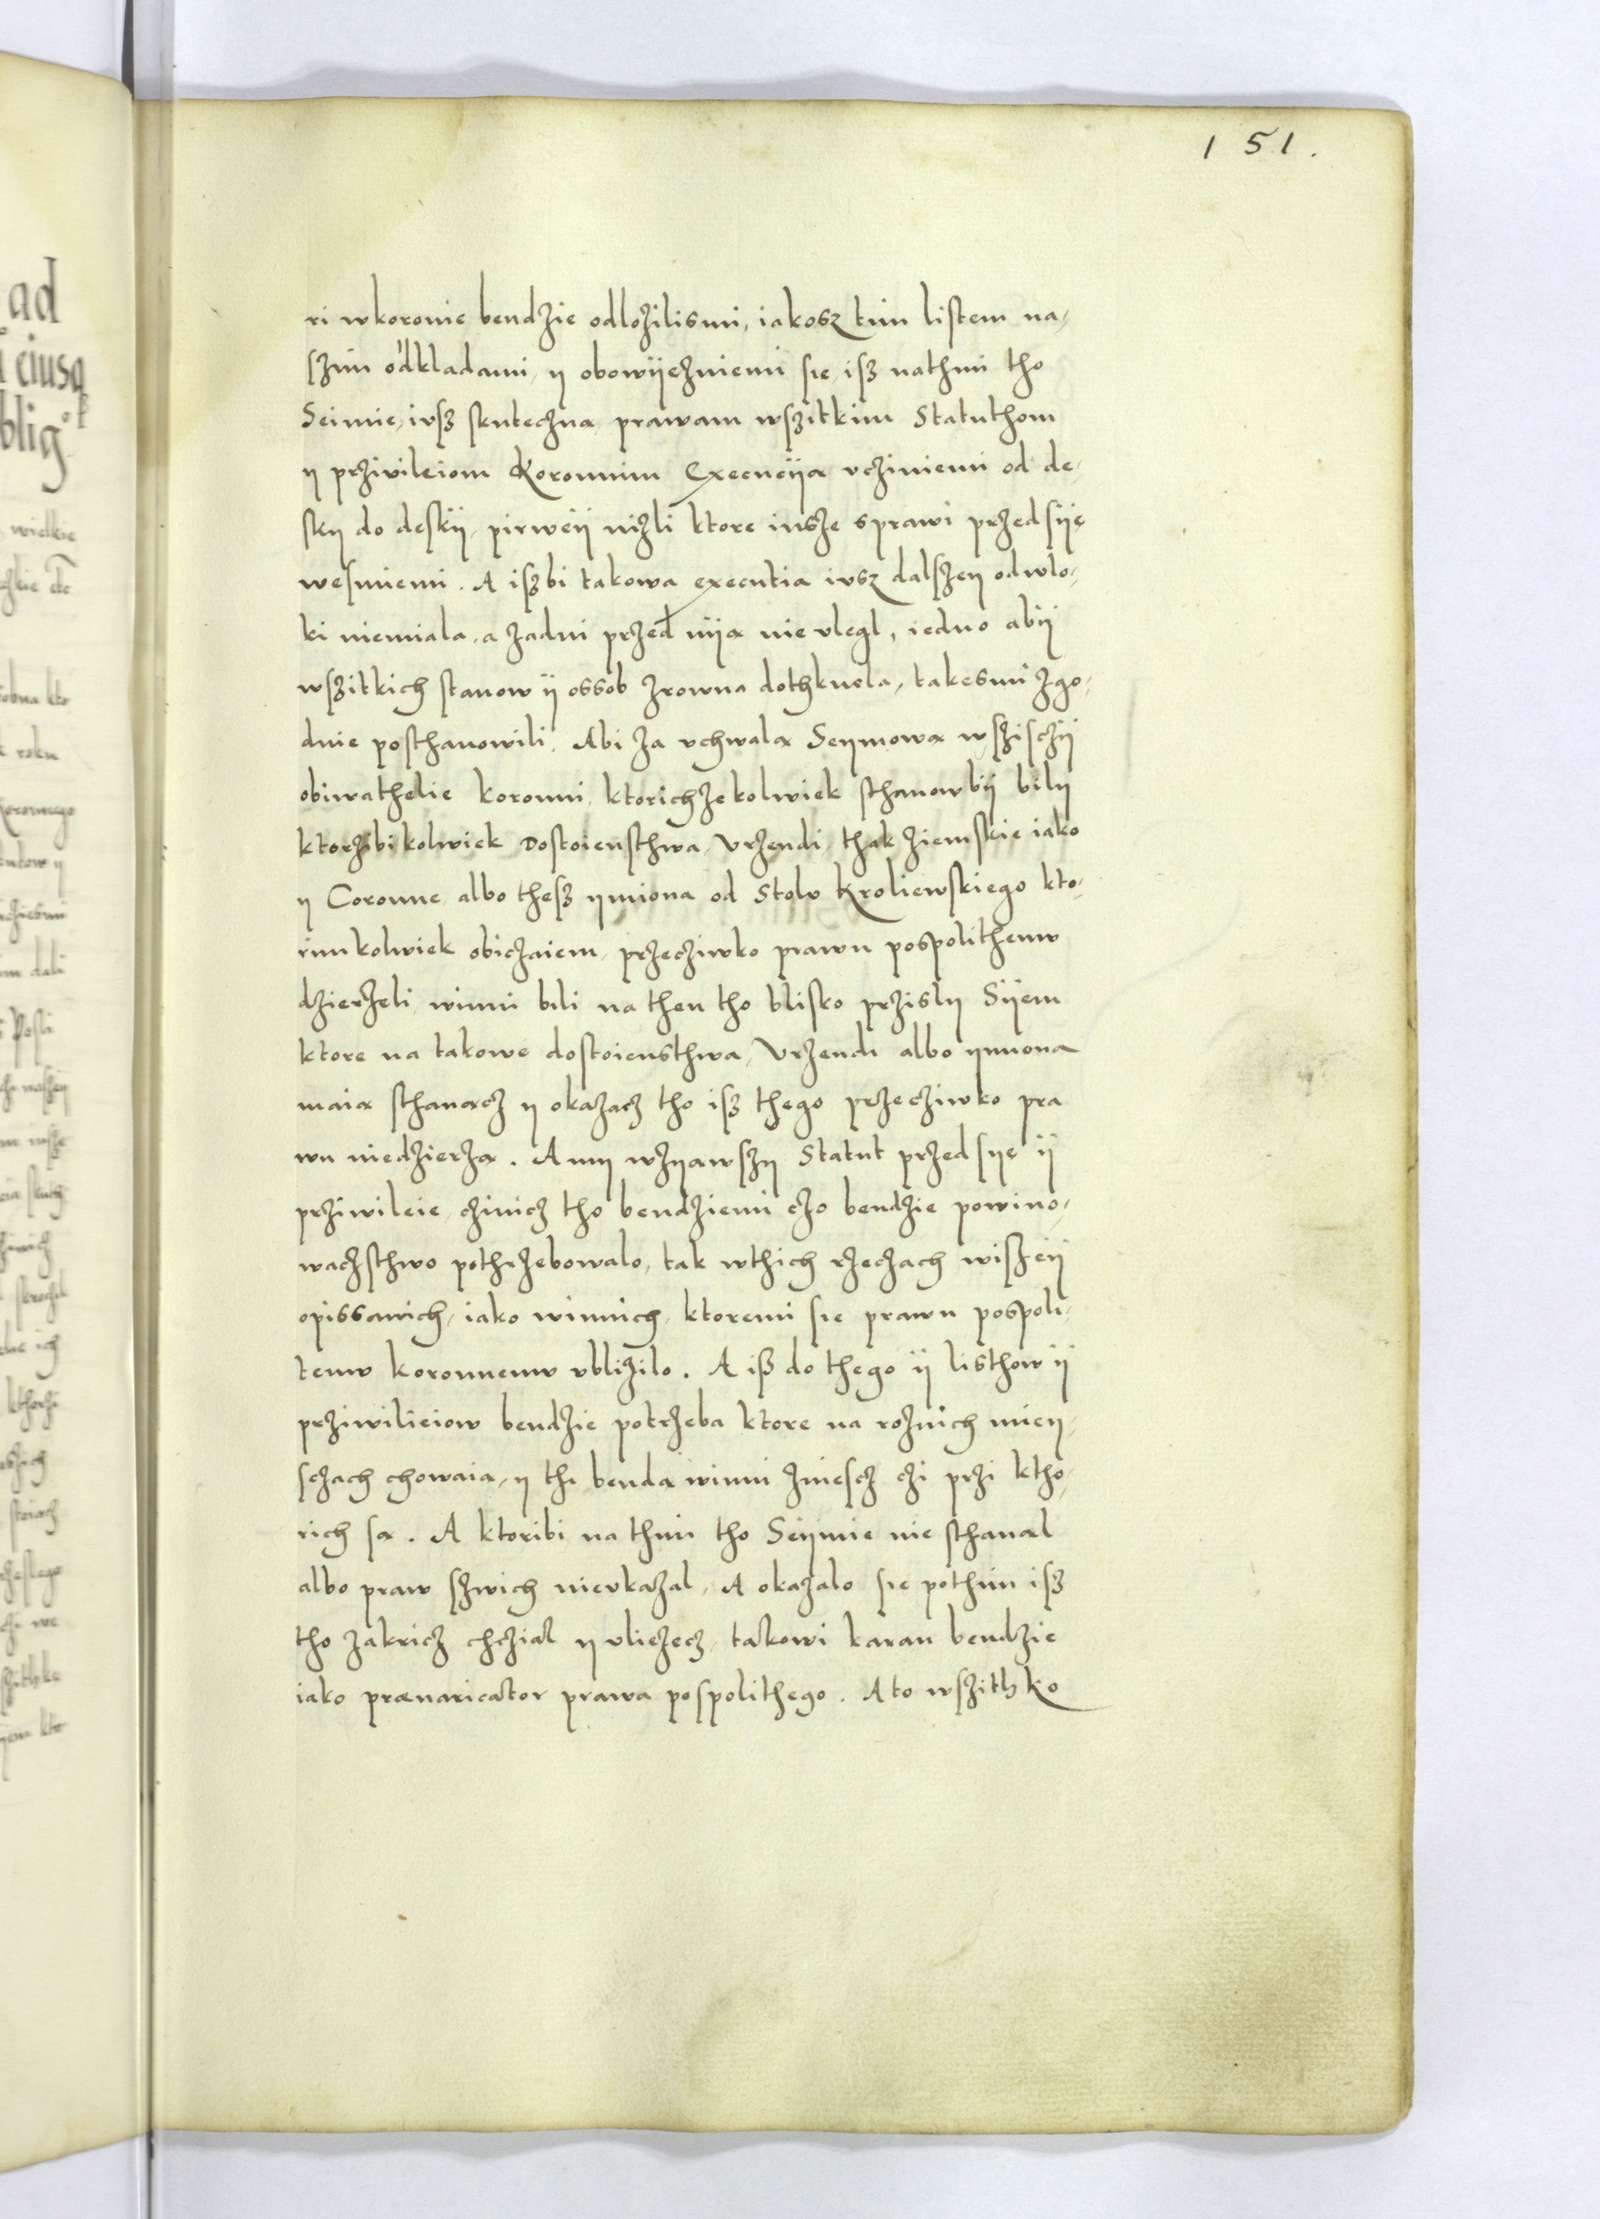 151.
ri wkoronie bendzie odlozilismi, iakosz tim listem na-
szim odkladami, y obowijezniemi sie, isz nathmi tho
Seimie, iusz skuteczna prawam wszitkim Statuthom
y przivileiom Koronnim Execucija vcziniemi od de-
sky do deskij, pirweij nizli ktore insze sprawi przed sije
wesmiemi. A iszbi takowa executia iusz dalszey odwlo-
ki niemiala, a zadni przed nija nie vlegl, iedno abij
wszitkich stanow ij ossob zrowna dothknela, takesmi zgo-
dnie posthanowili, Abi za vchwala Seymowa wszisczij
obiwathelie koronni, ktorichzekolwiek sthanow bij bily
ktorzibikolwiek Dostoiensthwa, Vrzendi, thak ziemskie iako
y Coronne albo thesz ymiona od Stolv Kroliewskiego kto-
rimkolwiek obiczaiem, przecziwko prawu pospolithemv
dzierzeli winni bili na then tho blisko przisly Sijem
ktore na takowe dostoiensthwa, Vrzendi albo ymiona
maia sthanacz y okazacz tho isz thego przecziwko pra
wu niedzierza. A my wzyawszy Statut przed sye ij
priwileie, czinicz tho bendziemi czo bendzie powino-
waczsthwo pothrzebowalo, tak wthich rzeczach wiszeij
opissanich, iako winnich, ktoremi sie prawu pospoli-
temv koronnemv vblizilo. A isz do thego ij listhow ij
prziwilieiow bendzie potrzeba ktore na roznich miey-
sczach chowaia, y thi benda winni zniescz czi przi ktho-
rich sa. A ktoribi na thim tho Seijmie nie sthanal
albo praw szwich nievkazal, A okazalo sie pothim isz
tho zakricz chczial y vlieczecz, takowi karan bendzie
iako praevaricator prawa pospolithego. A to wszithko
ad
eiusq
blig
wielkie
roku
Posli